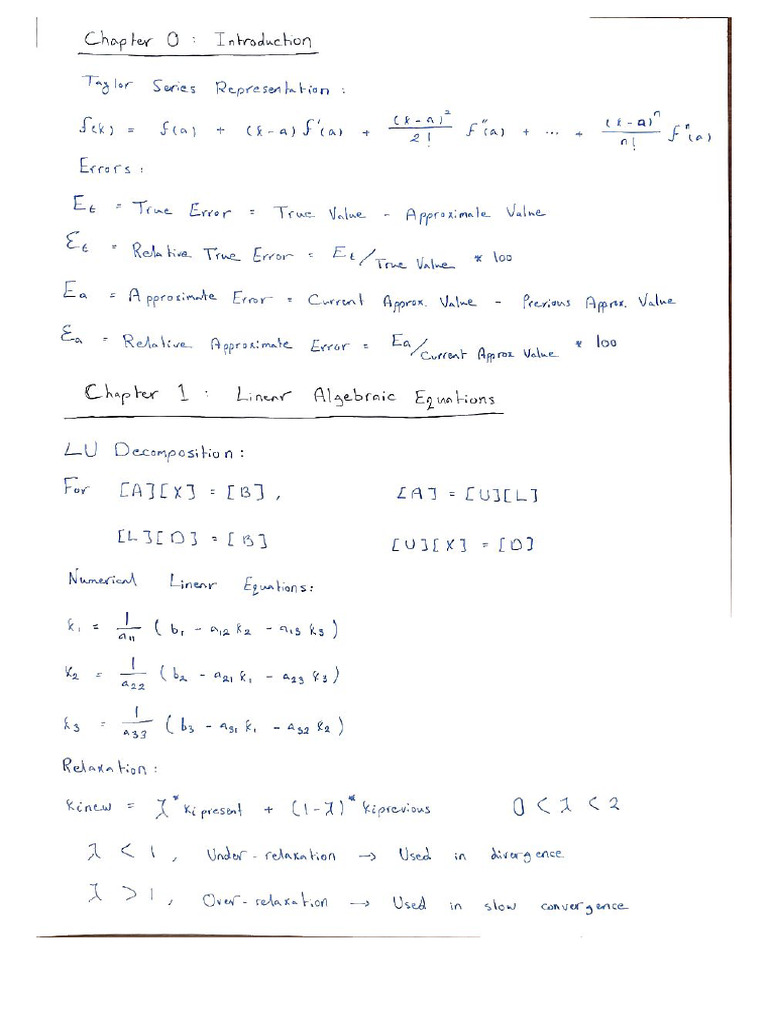 Chapter 0 : Introduction
Taylor Series Representation :
f(x) = f(a) + (x-a) f'(a) + (x-a)²/2! f''(a) + ... + (x-a)ⁿ/n! fⁿ(a)
Errors :
Et = True Error = True Value - Approximate Value
Ɛt = Relative True Error = Et/True Value * 100
Ea = Approximate Error = Current Approx. Value - Previous Approx. Value
Ɛa = Relative Approximate Error = Ea/Current Approx Value * 100
Chapter 1 : Linear Algebraic Equations
LU Decomposition :
For [A][X] = [B] , [A] = [U][L]
[L][D] = [B] [U][X] = [D]
Numerical Linear Equations :
x₁ = 1/a₁₁ ( b₁ - a₁₂ x₂ - a₁₃ x₃ )
x₂ = 1/a₂₂ ( b₂ - a₂₁ x₁ - a₂₃ x₃ )
x₃ = 1/a₃₃ ( b₃ - a₃₁ x₁ - a₃₂ x₂ )
Relaxation :
xinew = λ * xipresent + (1-λ) * xiprevious 0 < λ < 2
λ < 1 , Under-relaxation → Used in divergence
λ > 1 , Over-relaxation → Used in slow convergence